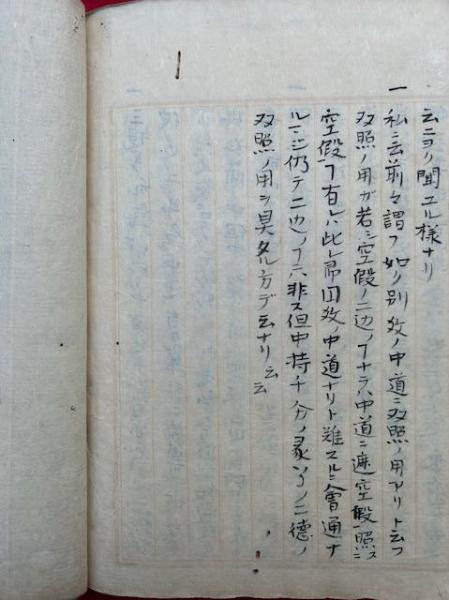 云ニヨリ聞エル様ナリ
一 私ニ云前々謂フ如ク別教ノ中道ニ双照ノ用アリト云フ
双照ノ用ガ若シ空假ノ二辺ノフナラハ中道ニ遮空假照ス
空假フ有レハ此レ即円教ノ中道ナリト難スルニ會通ナ
ルニ仍テ二辺ノフニハ非ス但中持チ分ノノ二徳ノ
双照ノ用ヲ具タル方デ云ナリ云云